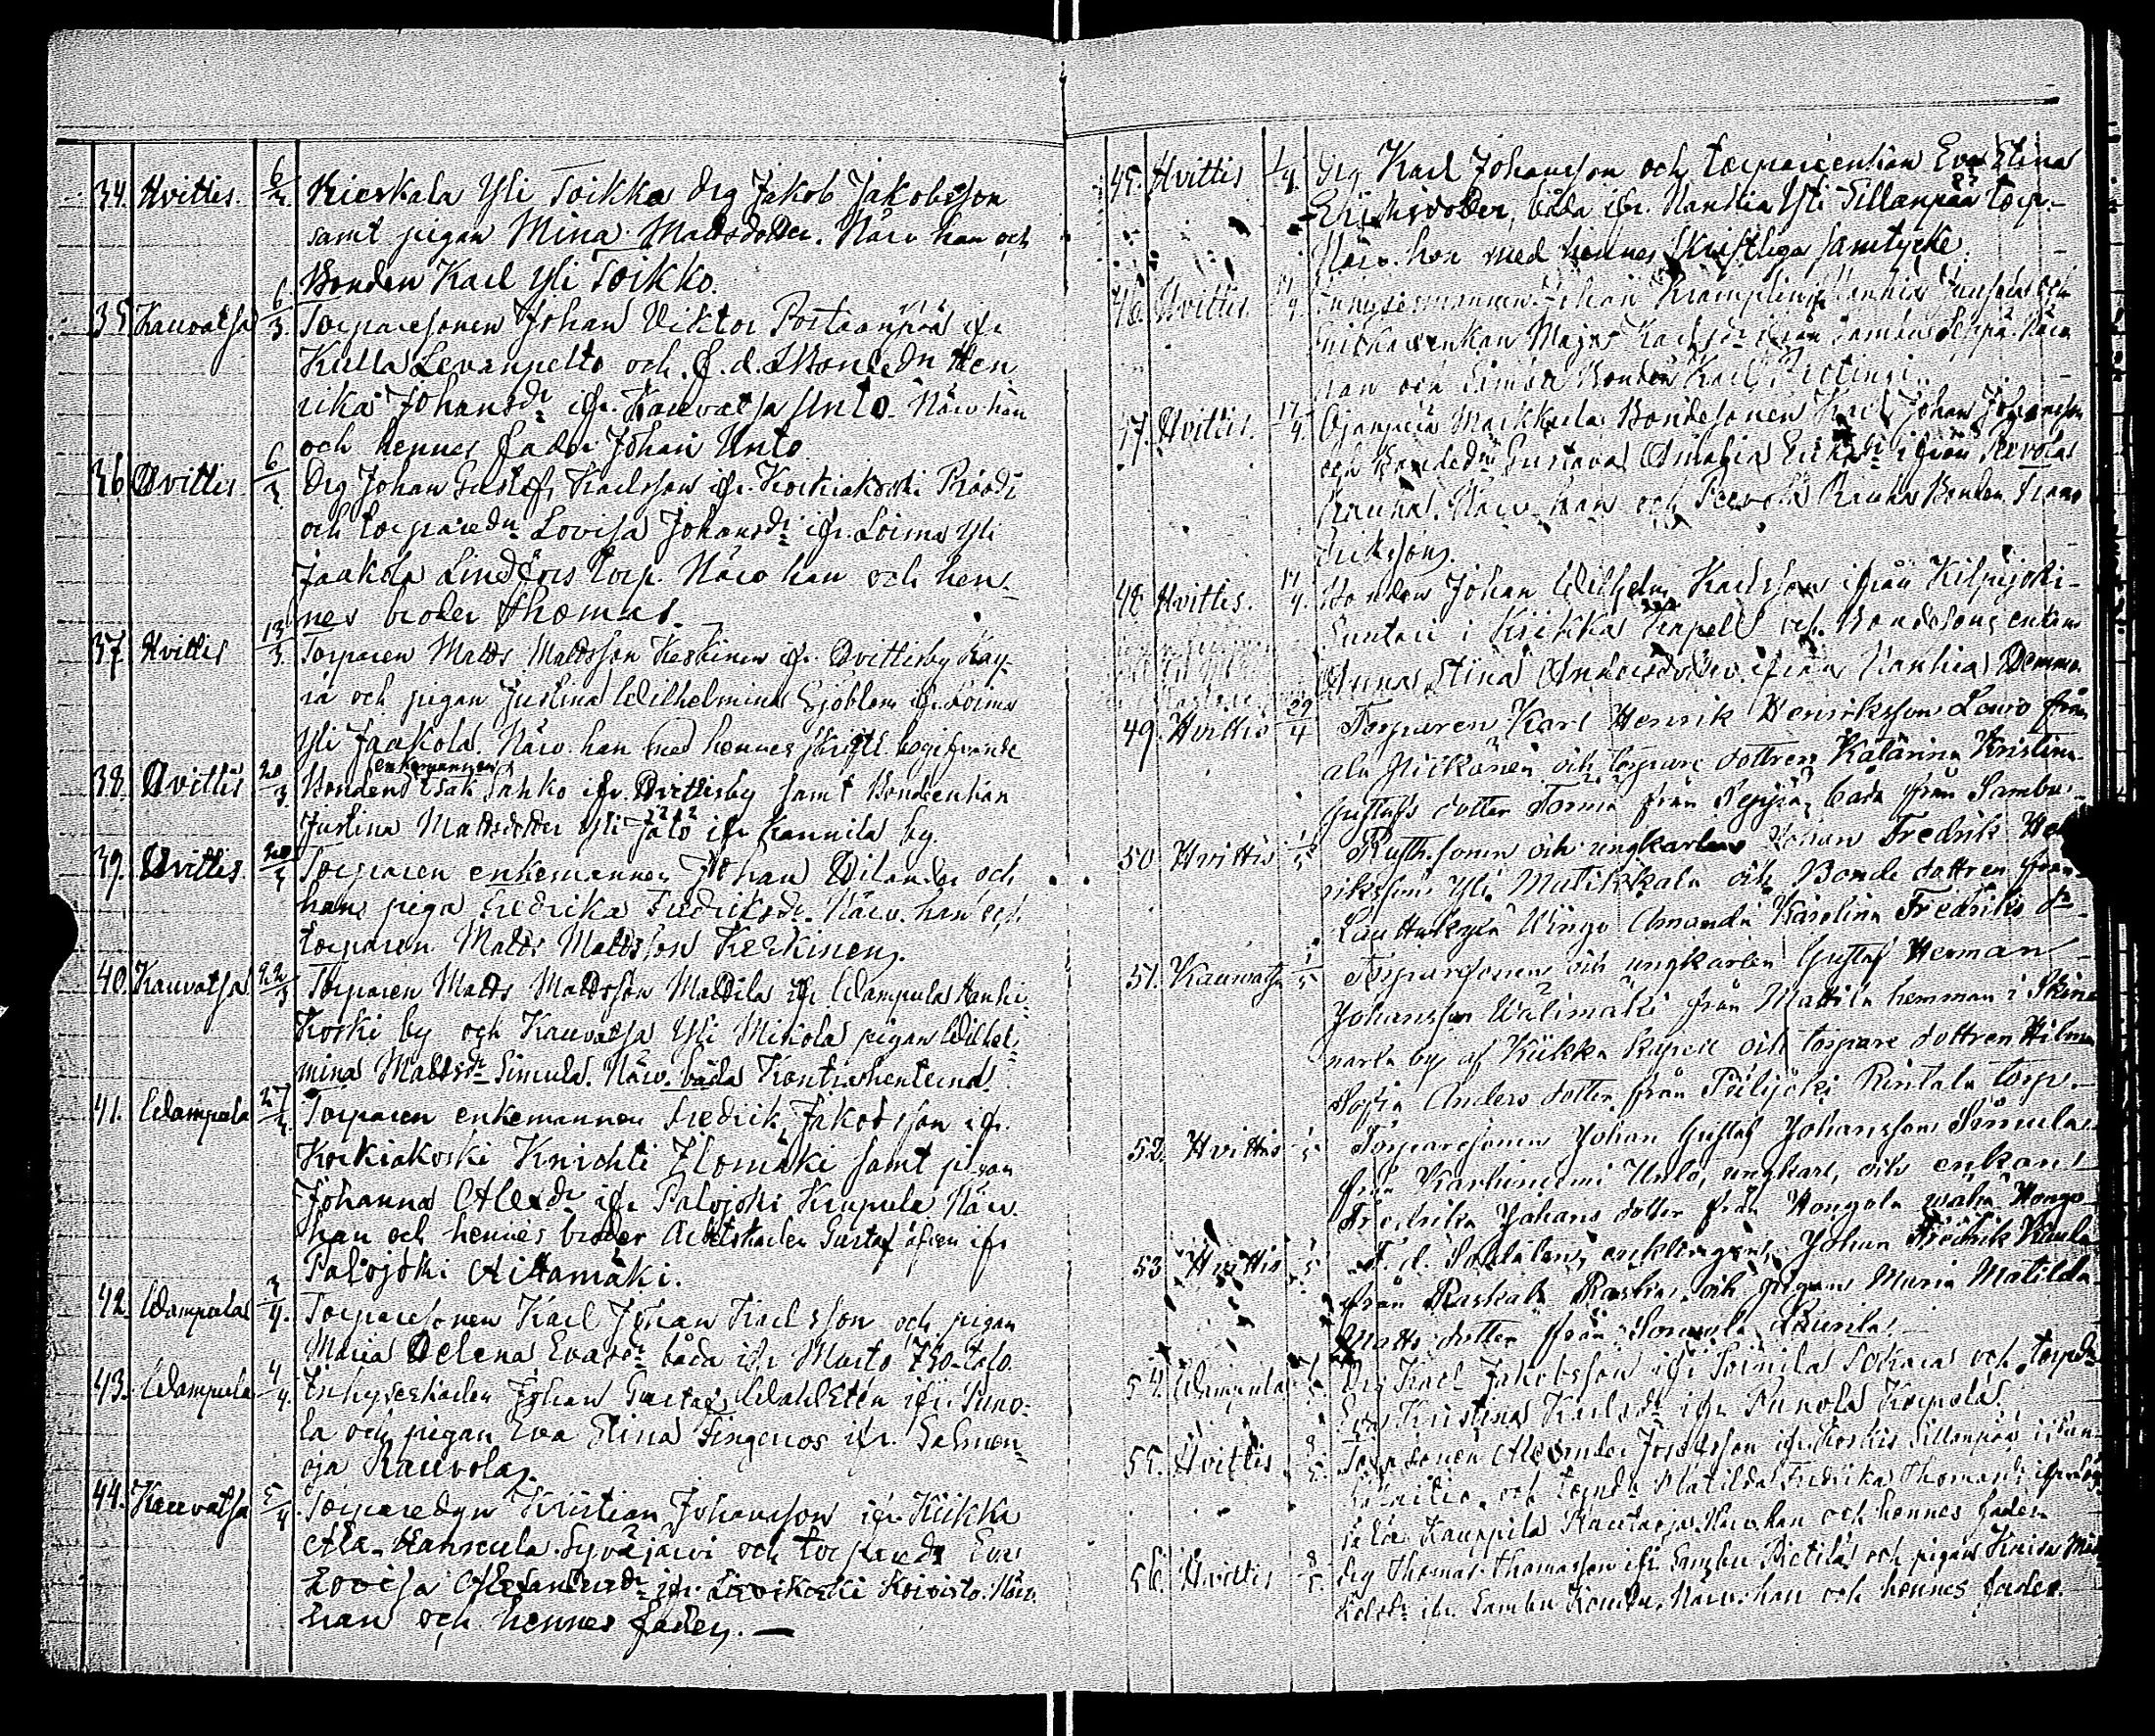 34. Hvittis. 6/3 Kieskala Yli Toikka drg Jakob Jakobsson
samt pigan Mina Mattsdotter. Närv. han och
Bonden Karl Yli Toikko.
35 Kauvatsa 6/3. Torparesonen Johan Viktor Postaanpää ifr.
Kulla Levanpelto och f. d. Bondedn Hen
rika Johansdr ifr. Kauvatsa Unto. Närv. han
och hennes fader Johan Unto
36 Hvittis 6/3 Drg Johan Gustaf Karlsson ifr. Korkiakoski
och torparedn Lovisa Johansdr ifr. Loima Yli
Jaakola Lindfors torp. Närv han och hen-
nes broder Thomas.
37. Hvittis 13/3. Torparen Matts Mattsson Keskinen ifr. Hvittisby
och pigan Justina Wilhelmina Sjöblom ifr. Loima
Yli Jaakola. Närv. han med hennes skriftl. begifvande
38. Hvittis 20/3. Bonden enkemannen Isak Sahko ifr. Hvittisby samt Bondeenkan
Justina Mattsdotter Yli Jalo ifr Kannila by.
39. Hvittis. 20/3 Torparen enkemannen Johan Vilander och
hans piga Fredrika Fredriksdr. Närv. han och
torparen Matts Mattsson Keskinen.
40. Kauvatsa 22/3 Torparen Matts Mattsson Mattila ifr Wampula Hanhi
koski by och Kauvatsa Yli Mikola pigan Wilhel-
mina Mattsdr Simula. Närv. båda Kontrahenterna.
41. Wampula 27/3 Torparen enkemannen Fredrik Jakobsson ifr.
Korkiakoski Knichti Ylomäki samt pigan
Johanna Alexdr ifr. Palojoki Krupula Närv.
han och hennes broder Arbetskarlen Gustaf äfven ifr
Palojoki Aittamäki.
42. Wampula 3/4. Torparesonen Karl Johan Karlsson och pigan
Maria Helena Evasdr båda ifr Murto Iso-talo.
43. Wampula 4/4. Inhyseskarlen Johan Gustaf Wahlstén ifr. Puno-
la och pigan Eva Stina Fingerros ifr. Salmen-
oja Rauvola.
44. Kauvatsa 5/4. Torparedgn Kristian Johansson ifr. Kiikka
Ala-Hannula Syväjärvi och torparedr Eva
Lovisa Alexandersdr ifr. Lievikoski Koivisto. Närv.
han och hennes fader. —
45. Hvittis 1/4. Drg Karl Johansson och torpareenkan Eva Stina
Eriksdotter, båda ifr. Nanhia Yli Sillanpää torp.-
Närv. han med hennes skriftliga samtycke.
46. Hvittis. 11/4. Johan Kramplin
enkan Maja Karlsdr från Sambu Seppä. Närv
han och Sambu Bonden Karl
47. Hvittis. 17/4. Ojanperä Markkula Bondesonen Karl Johan Johansson
och Bondedn Gustava Amalia Eriksdr ifrån
Rauha. Närv. han och Rauha Bonden Frans
Eriksson.
48 Hvittis. 17/4. Bonden Johan Wilhelm Karlsson ifrån Kilpijoki-
Suntari i Kiikka Kapell och Bondesons enkan
Anna Stina Andersdotter ifrån Nanhia
49. Hvittis 29/4 Torparen Karl Henrik Henriksson Lauro från
ala och torpare dottren Katarina Kristina
Gustafs dotter Torma från Seppä, båda från Sambu.
50. Hvittis 1/5 Rusth.sonen och ungkarlen Johan Fredrik Hen
riksson Yli Mutikkala och Bonde dottren från
Lauttakylä Wingo Amanda Karolina Fredriks dr
51. Kauvatsa 1/5 Torparesonen och ungkarlen Gustaf Herman
Johansson Wälimäki från Mattila hemman i Skina
narla by af Kiikka kapell och torpare dottren Hilma
Sofia Anders dotter från Piilijoki Rintala torp.
52. Hvittis 1/5 Torparesonen Johan Gustaf Johansson Simula
från Karhiniemi Unto, ungkarl, och enkan
Fredrika Johans dotter från Hongola
53. Hvittis 1/5 F. d. Soldaten, enklingen Johan Fredrik Kaula
från Raskala Raskin och pigan Maria Matilda
Matts dotter från Sonnila Kunila.
54. Wampula 7/5. Drg Karl Jakobsson ifr Soinila Sokura och torpdn
Eva Kristina Karlsdr ifr Punola Korpela.
55. Hvittis 8/5. Torp sonen Alexander Josefsson ifr. Koskis Sillanpää
och torpdr Matilda Fredrika Thomasdr
Kauppila Rautaoja. Närv. han och hennes fader.
56. Hvittis 8/5. Drg Thomas Thomasson ifr. Sambu Pietilä och pigan
ifr. Sambu Kouhi. Närv. han och hennes fader.